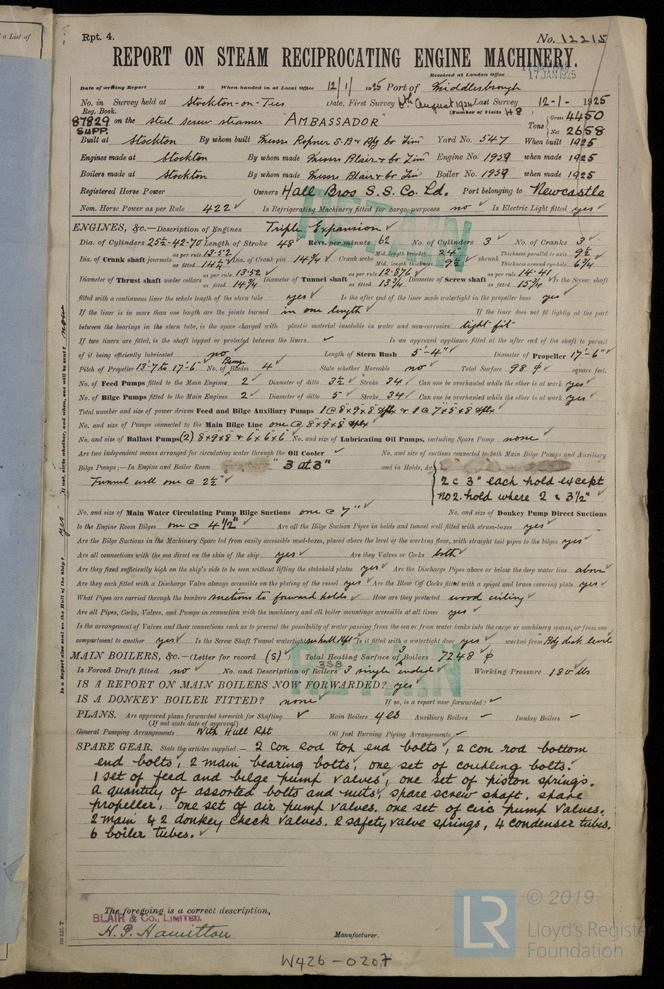 a List of
Rpt. 4.
No. 12215
REPORT ON STEAM RECIPROCATING ENGINE MACHINERY.
Received at London Office
17 JAN 1925
Date of writing Report 19 When handed in at Local Office 12/1/1925 Port of Middlesbrough
No. in Survey held at Stockton-on-Tees Date, First Survey August 1924 Last Survey 12-1-1925
Reg. Book. (Number of Visits 48
87829 SUPP. on the steel screw steamer "AMBASSADOR" Tons Gross 4450 Net 2658
Built at Stockton By whom built Messrs Ropner S.B & Rfg Co Lim Yard No. 547 When built 1925
Engines made at Stockton By whom made Messrs Blair & Co Lim Engine No. 1959 when made 1925
Boilers made at Stockton By whom made Messrs Blair & Co Lim Boiler No. 1959 when made 1925
Registered Horse Power Owners Hall Bros S.S. Co. Ld. Port belonging to Newcastle
Nom. Horse Power as per Rule 422 Is Refrigerating Machinery fitted for cargo purposes no Is Electric Light fitted yes
RETAIN
ENGINES, &c.—Description of Engines Triple Expansion
Dia. of Cylinders 25½-42-70 Length of Stroke 48" Revs. per minute 62 No. of Cylinders 3 No. of Cranks 3
Dia. of Crank shaft journals as per rule 13.52 as fitted 14¼ Dia. of Crank pin 14¾ Crank webs Mid. length breadth 24" Mid. length thickness 9½ shrunk Thickness parallel to axis 9½ Thickness around eye 6¾
Diameter of Thrust shaft under collars as per rule 13.52 as fitted 14¾ Diameter of Tunnel shaft as per rule 12.876 as fitted 13¾ Diameter of Screw shaft as per rule 14.41 as fitted 15¾ Is the Screw shaft
fitted with a continuous liner the whole length of the stern tube yes Is the after end of the liner made watertight in the propeller boss yes
If the liner is in more than one length are the joints burned in one length If the liner does not fit tightly at the part
between the bearings in the stern tube, is the space charged with a plastic material insoluble in water and non-corrosive tight fit
If two liners are fitted, is the shaft lapped or protected between the liners Is an approved appliance fitted at the after end of the shaft to permit
of it being efficiently lubricated no Length of Stern Bush 5'-4" Diameter of Propeller 17'-6"
Pitch of Propeller No. of Blades 4 State whether Moveable no Total Surface 98 square feet.
No. of Feed Pumps fitted to the Main Engines 2 Diameter of ditto 3½ Stroke 34 Can one be overhauled while the other is at work yes
No. of Bilge Pumps fitted to the Main Engines 2 Diameter of ditto 5 Stroke 34 Can one be overhauled while the other is at work yes
Total number and size of power driven Feed and Bilge Auxiliary Pumps 1 @ 8×9×8 & 1 @ 7×5×8
No. and size of Pumps connected to the Main Bilge Line one @ 8×9×8
No. and size of Ballast Pumps (2) 8×9×8 & 6×6×6 No. and size of Lubricating Oil Pumps, including Spare Pump none
Are two independent means arranged for circulating water through the Oil Cooler No. and size of suctions connected to both Main Bilge Pumps and Auxiliary
Bilge Pumps;—In Engine and Boiler Room "3 at 3" and in Holds, &c.
Tunnel well one @ 2½" 2 @ 3" each hold except
No 2. hold where 2 @ 3½"
No. and size of Main Water Circulating Pump Bilge Suctions one @ 7" No. and size of Donkey Pump Direct Suctions
to the Engine Room Bilges one @ 4½" Are all the Bilge Suction Pipes in holds and tunnel well fitted with strum-boxes yes
Are the Bilge Suctions in the Machinery Space led from easily accessible mud-boxes, placed above the level of the working floor, with straight tail pipes to the bilges yes
Are all connections with the sea direct on the skin of the ship yes Are they Valves or Cocks both
Are they fixed sufficiently high on the ship's side to be seen without lifting the stokehold plates yes Are the Discharge Pipes above or below the deep water line above
Are they each fitted with a Discharge Valve always accessible on the plating of the vessel yes Are the Blow Off Cocks fitted with a spigot and brass covering plate yes
What Pipes are carried through the bunkers suctions to forward holds How are they protected wood ceiling
Are all Pipes, Cocks, Valves, and Pumps in connection with the machinery and all boiler mountings accessible at all times yes
Is the arrangement of Valves and their connections such as to prevent the possibility of water passing from the sea or from water tanks into the cargo or machinery spaces, or from one
compartment to another yes Is the Screw Shaft Tunnel watertight see hull Rpt Is it fitted with a watertight door yes worked from
MAIN BOILERS, &c.—(Letter for record (S)) Total Heating Surface of Boilers 7248
3SB
Is Forced Draft fitted no No. and Description of Boilers 3 single ended Working Pressure 180 lbs
RETAIN
IS A REPORT ON MAIN BOILERS NOW FORWARDED? yes
IS A DONKEY BOILER FITTED? none If so, is a report now forwarded?
PLANS. Are approved plans forwarded herewith for Shafting Main Boilers yes Auxiliary Boilers Donkey Boilers
(If not state date of approval)
General Pumping Arrangements With Hull Rpt Oil fuel Burning Piping Arrangements
SPARE GEAR. State the articles supplied:— 2 con rod top end bolts, 2 con rod bottom
end bolts, 2 main bearing bolts, one set of coupling bolts.
1 set of feed and bilge pump valves, one set of piston springs.
a quantity of assorted bolts and nuts, spare screw shaft, spare
propeller, one set of air pump valves. one set of circ pump valves.
2 main & 2 donkey check valves. 2 safety valve springs, 4 condenser tubes.
6 boiler tubes.
The foregoing is a correct description,
BLAIR & Co., LIMITED.
H. P. Hamilton
Manufacturer.
W426-0207
© 2019
LR
Lloyd's Register
Foundation